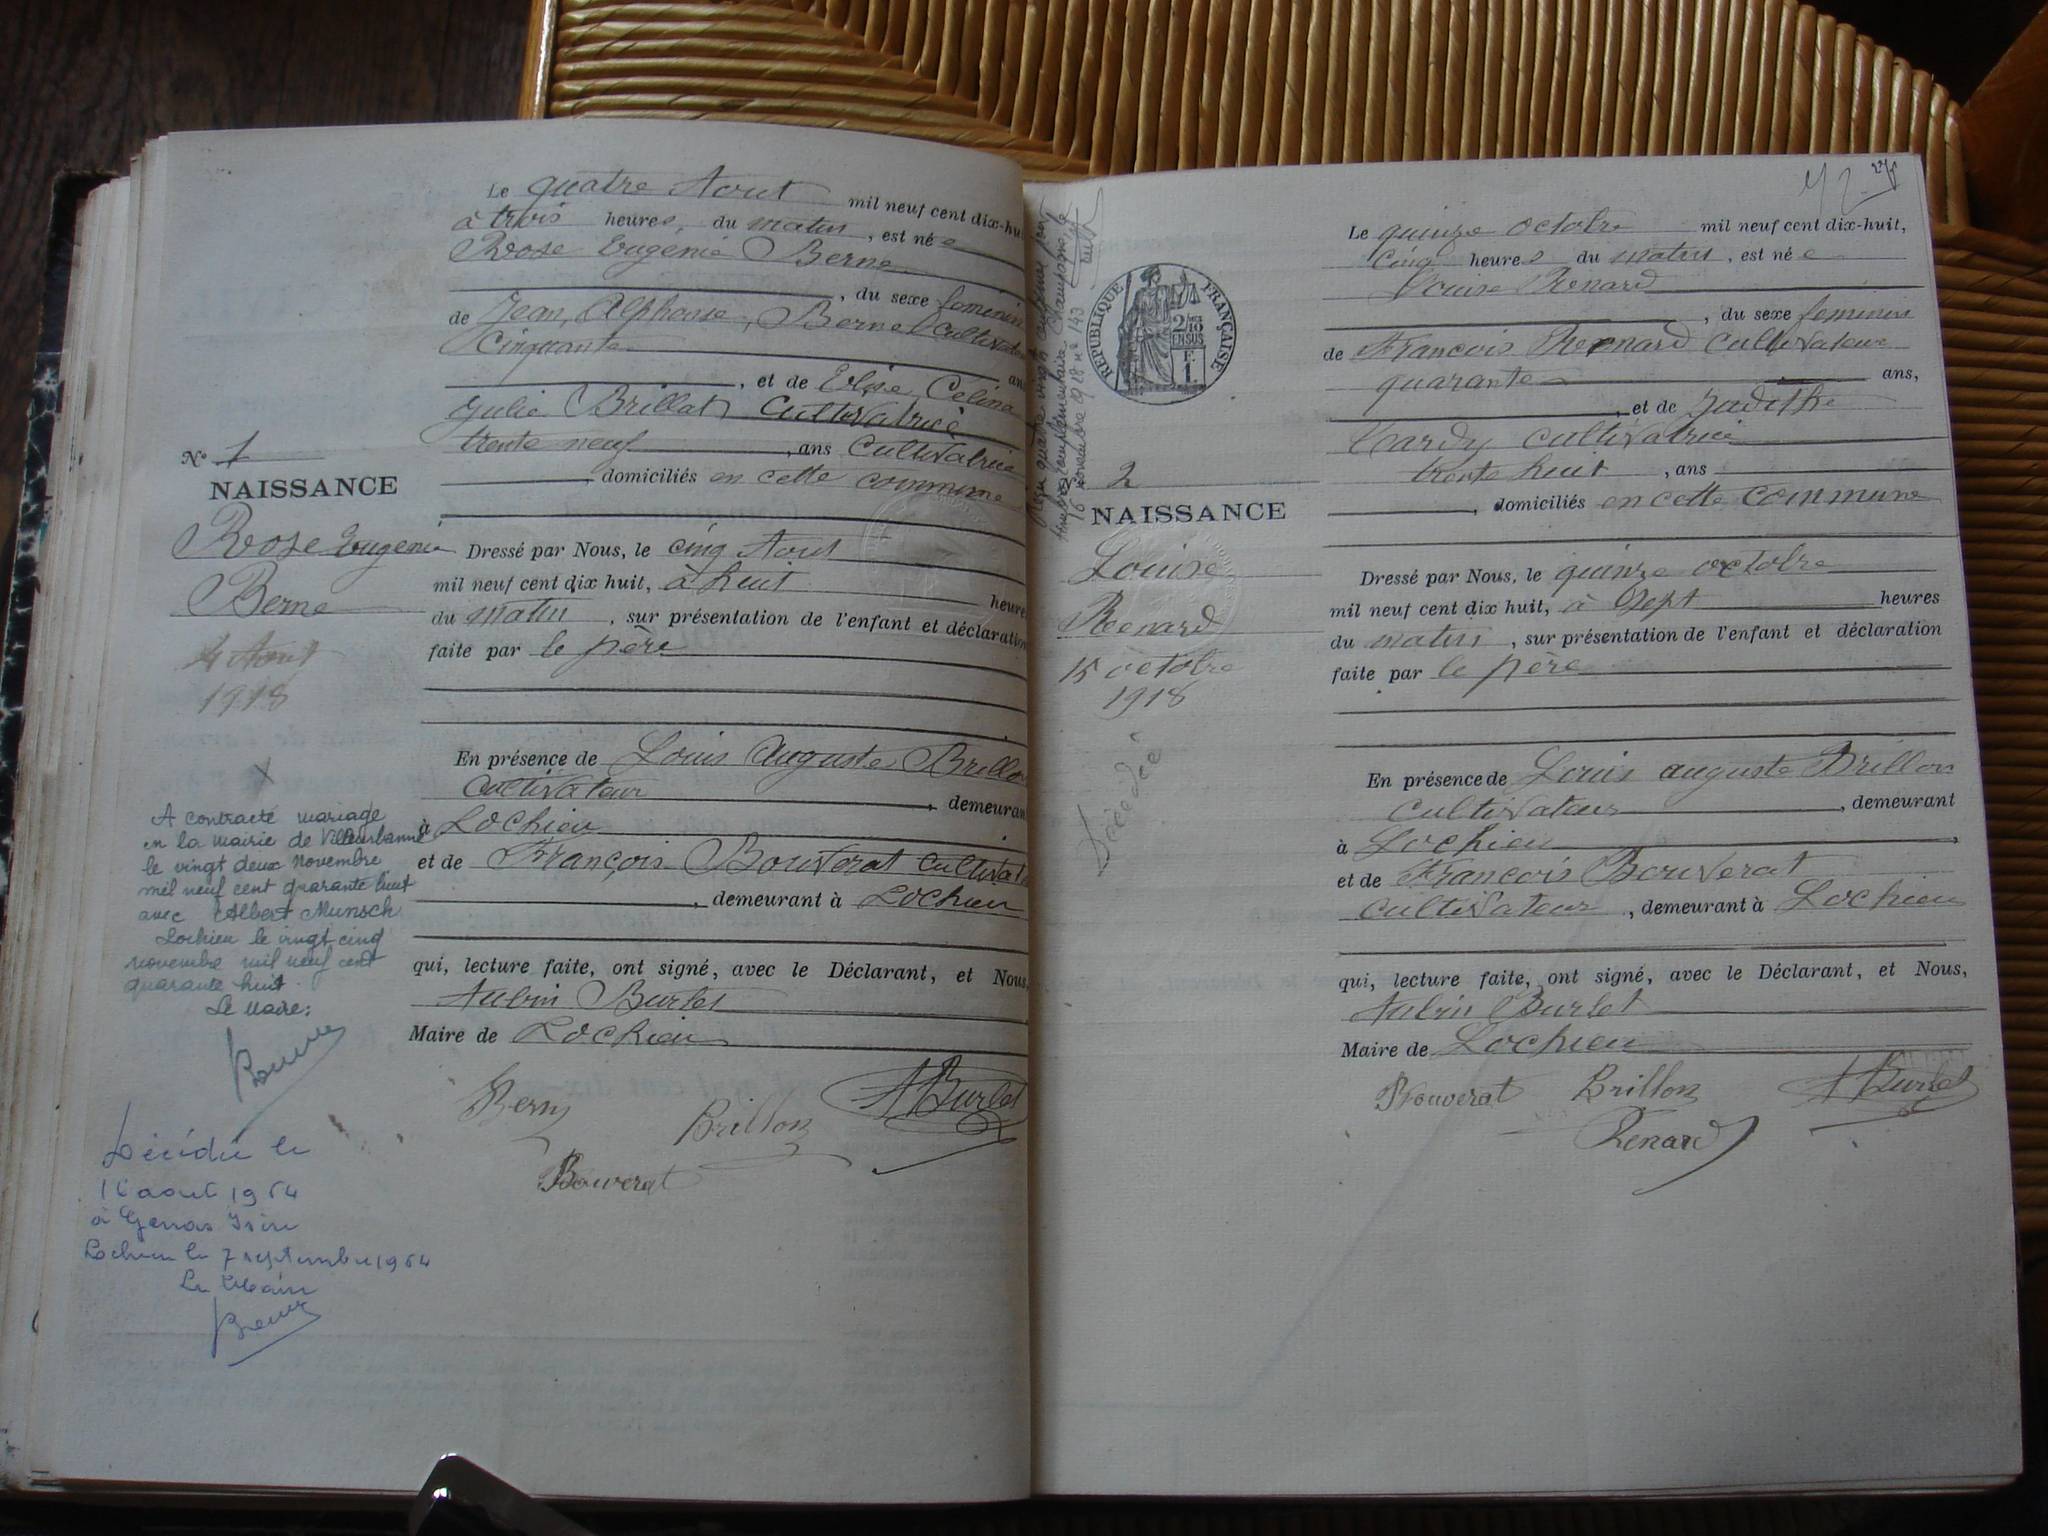 Le quatre Aout mil neuf cent dix-hui
à trois heures, du matin, est née
Rose Eugenie Berne
, du sexe féminin
de Jean, Alphonse, Berne Cultivateu
Cinquante an
, et de Elise Célina
Julie Brillat Cultivatrice
trente neuf, ans Cultivatrice
domiciliés en cette commune
Dressé par Nous, le cinq Aout
mil neuf cent dix huit, à huit heures
du matin, sur présentation de l'enfant et déclaration
faite par le père
En présence de Louis Auguste Brillon
Cultivateur, demeurant
à Lochieu
et de François Bouverat cultivat
, demeurant à Lochieu
qui, lecture faite, ont signé, avec le Déclarant, et Nous,
Aubin Burlet
Maire de Lochieu
Berne
Brillon
ABurlet
Bouverat
N° 1
NAISSANCE
Rose Eugenie
Berne
4 Aout
1918
X
A contracté mariage
en la mairie de Villeurbanne
le vingt deux novembre
mil neuf cent quarante huit
avec Albert Munsch
Lochieu le vingt cinq
novembre mil neuf cent
quarante huit.
Le Maire:
Décédée le
août 1964
à Genas Isère
Lochieu le 7 septembre 1964
Le Maire
Le quinze octobre mil neuf cent dix-huit,
Cinq heures du matin, est née
Louise Renard
, du sexe féminin
de François Renard Cultivateur
quarante ans,
, et de Judithe
Hardy cultivatrice
trente huit, ans
, domiciliés en cette commune
Dressé par Nous, le quinze octobre
mil neuf cent dix huit, à Sept heures
du matin, sur présentation de l'enfant et déclaration
faite par le père
En présence de Louis auguste Brillon
Cultivateur, demeurant
à Lochieu,
et de François Bouverat
cultivateur, demeurant à Lochieu
qui, lecture faite, ont signé, avec le Déclarant, et Nous,
Aubin Burlet
Maire de Lochieu
Bouverat
Brillon
ABurlet
Renard
RÉPUBLIQUE FRANÇAISE
2/10
EN SUS
F.
1
2
NAISSANCE
Louise
Renard
15 octobre
1918
Décédée